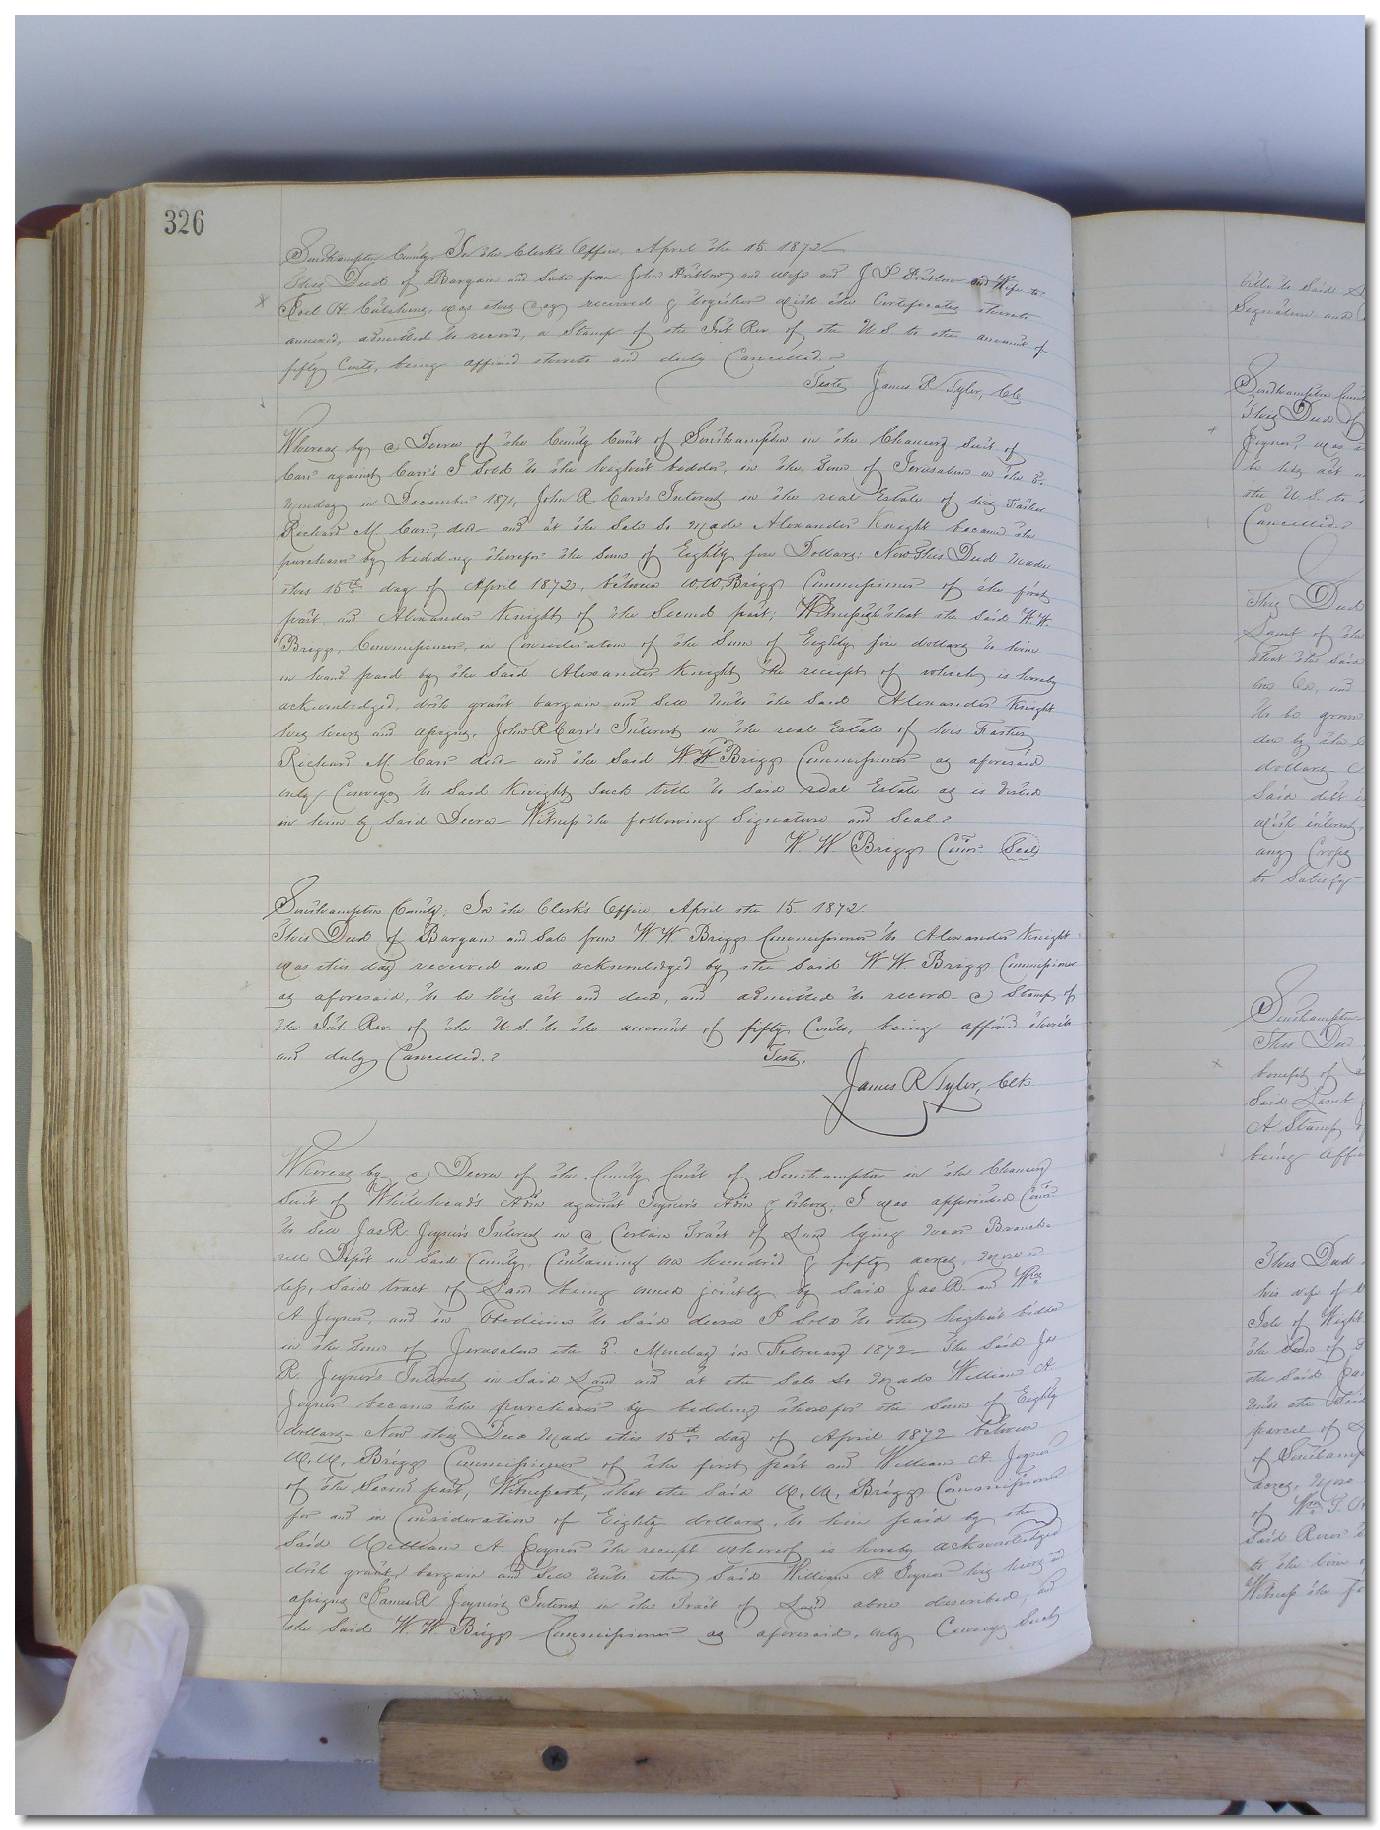 326
Southampton County, In the Clerk's Office, April the 15. 1872
This Deed of Bargain and Sale from John and wife and J and Wife to
Joel H. was this day received & together with the Certificates thereto
annexed, admitted to record, a Stamp of the Int Rev of the U.S. to the amount of
fifty Cents, being affixed thereto and duly Cancelled.
Teste James R Tyler, Clk
Whereas by a Decree of the County Court of Southampton in the Chancery Suit of
Carr against Carr's I sold to the highest bidder, in the Town of Jerusalem on the 3.
Monday in December 1871, John R Carr's Interest in the real Estate of his Father
Richard M. Carr, decd and at the Sale so made Alexander Knight became the
purchaser by bidding therefor the sum of Eighty five Dollars: Now This Deed made
this 15th day of April 1872, between W.W. Briggs Commissioner of the first
part and Alexander Knight of the Second part; Witnesseth that the said W.W.
Briggs, Commissioner, in Consideration of the Sum of Eighty five dollars to him
in hand paid by the said Alexander Knight the receipt of which is hereby
acknowledged, doth grant bargain and Sell unto the Said Alexander Knight
his heirs and assigns, John R Carr's Interest in the real Estate of his Father
Richard M Carr decd and the Said W W Briggs Commissioner as aforesaid
only Conveys to Said Knight Such title to Said real Estate as is vested
in him by Said Decree - Witness the following Signature and Seal.
W. W. Briggs Comr. Seal
Southampton County, In the Clerk's Office April the 15 1872.
This Deed of Bargain and Sale from W W Briggs Commissioner to Alexander Knight
was this day received and acknowledged by the Said W W. Briggs Commissioner
as aforesaid, to be his act and deed, and admitted to record - a Stamp of
the Int. Rev. of the U.S. to the amount of fifty Cents, being affixed thereto
and duly Cancelled.
Teste,
James R Tyler, Clk
Whereas by a Decree of the County Court of Southampton in the Chancery
Suit of Whitehead's Adm against Joyner's Adm & others, I was appointed Comr.
to Sell Jas R. Joyner's Interest in a Certain Tract of Land lying near Branch-
ville Depot in Said County, Containing one hundred & fifty acres, more or
less, said tract of Land being owned jointly by Said Jas R. and Wm
A Joyner, and in obedience to Said decree I Sold to the highest bidder
in the Town of Jerusalem the 3. Monday in February 1872 - The Said Jas
R. Joyner's Interest in Said Land and at the Sale so made William A
Joyner became the purchaser by bidding therefor the sum of Eighty
dollars - Now this Deed made this 15th day of April 1872 between
W.W. Briggs Commissioner of the first part and William A Joyner
of the Second part, Witnesseth, that the Said W.W. Briggs Commissioner
for and in Consideration of Eighty dollars, to him paid by the
Said William A Joyner the receipt whereof is hereby acknowledged
doth grant bargain and Sell unto the Said William A Joyner his heirs and
assigns James R Joyner's Interest in the Tract of Land above described, and
the Said W. W. Briggs Commissioner as aforesaid, only Conveys Such
title to Said
Signature and
Southampton
This Deed of
Joyner, was
to his act
the U.S. to
Cancelled.
This Deed
of the
that the Said
Co, and
to be grown
by the
dollars
Said debt
with interest,
any Crops
to Satisfy
Southampton
This Deed
benefit of
Said
A Stamp
being affixed
This Deed
his wife of
Isle of Wight
the Sum of
the Said
unto the Said
parcel of
of Southampton
acres, more
of Wm T.
Said River
to the line
Witness the